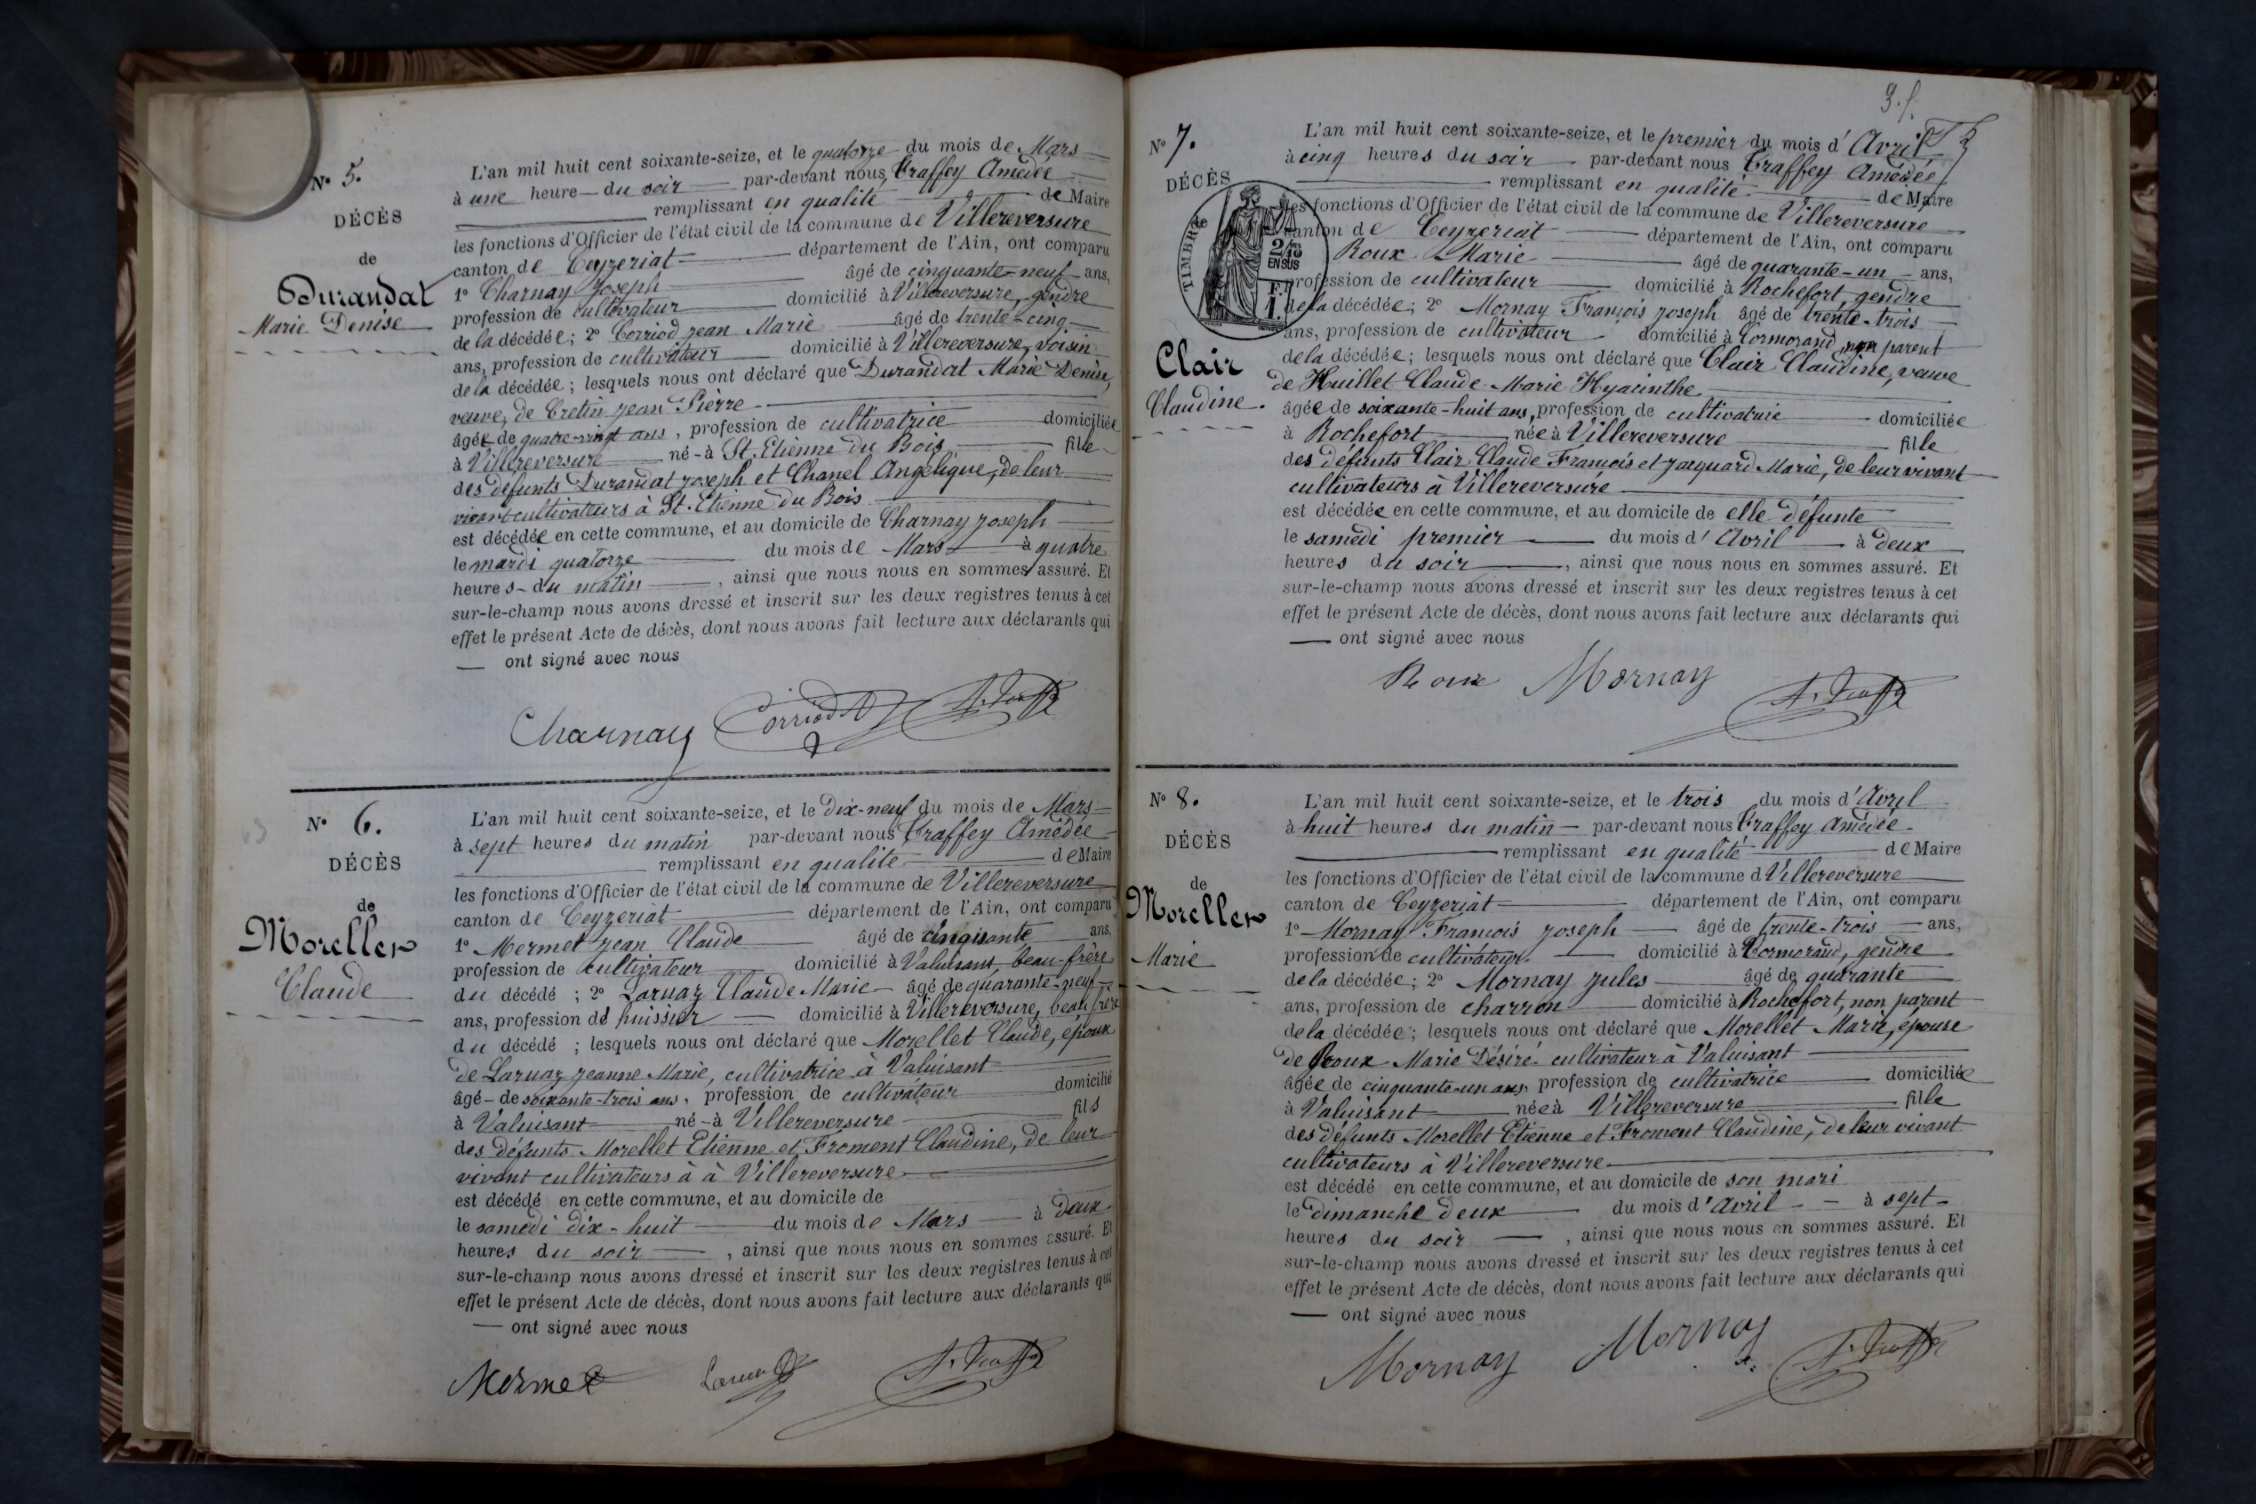 N° 5.
DÉCÈS
de
Durandat
Marie Denise
L'an mil huit cent soixante-seize, et le quatorze du mois de Mars
à une heure du soir par-devant nous Traffey Amédée
remplissant en qualité de Maire
les fonctions d'Officier de l'état civil de la commune de Villereversure
canton de Ceyzeriat département de l'Ain, ont comparu
1° Charnay Joseph âgé de cinquante-neuf ans,
profession de cultivateur domicilié à Villereversure, gendre
de la décédée; 2° Corriod Jean Marie âgé de trente-cinq
ans, profession de cultivateur domicilié à Villereversure, voisin
de la décédée; lesquels nous ont déclaré que Durandat Marie Denise,
veuve, de Cretin Jean Pierre
âgée de quatre-vingt ans, profession de cultivatrice domiciliée
à Villereversure né-à St. Etienne du Bois fille
des défunts Durandat Joseph et Chanel Angélique, de leur
vivant cultivateurs à St. Etienne du Bois
est décédée en cette commune, et au domicile de Charnay Joseph
le mardi quatorze du mois de Mars à quatre
heures du matin, ainsi que nous nous en sommes assuré. Et
sur-le-champ nous avons dressé et inscrit sur les deux registres tenus à cet
effet le présent Acte de décès, dont nous avons fait lecture aux déclarants qui
ont signé avec nous
Charnay Corriod A. Traffey
N° 6.
DÉCÈS
de
Morellet
Claude
L'an mil huit cent soixante-seize, et le Dix-neuf du mois de Mars
à sept heures du matin par-devant nous Traffey Amédée
remplissant en qualité de Maire
les fonctions d'Officier de l'état civil de la commune de Villereversure
canton de Ceyzeriat département de l'Ain, ont comparu
1° Mermet Jean Claude âgé de cinquante ans,
profession de cultivateur domicilié à Valuisant, beau-frère
du décédé ; 2° Laruaz Claude Marie âgé de quarante-neuf
ans, profession de huissier domicilié à Villereversure, beau frère
du décédé ; lesquels nous ont déclaré que Morellet Claude, époux
de Laruaz Jeanne Marie, cultivatrice à Valuisant
âgé de soixante-trois ans, profession de cultivateur domicilié
à Valuisant né-à Villereversure fils
des défunts Morellet Etienne et Froment Claudine, de leur
vivant cultivateurs à à Villereversure
est décédé en cette commune, et au domicile de
le samedi dix-huit du mois de Mars à Deux
heures du soir, ainsi que nous nous en sommes assuré. Et
sur-le-champ nous avons dressé et inscrit sur les deux registres tenus à cet
effet le présent Acte de décès, dont nous avons fait lecture aux déclarants qui
ont signé avec nous
Mermet Laruaz A. Traffey
3.f.
N° 7.
DÉCÈS
TIMBRE
2/10 EN SUS
F. 1.
Clair
Claudine.
L'an mil huit cent soixante-seize, et le premier du mois d'Avril
à cinq heures du soir par-devant nous Traffey Amédée
remplissant en qualité de Maire
les fonctions d'Officier de l'état civil de la commune de Villereversure
canton de Ceyzeriat département de l'Ain, ont comparu
Roux Marie âgé de quarante-un ans,
profession de cultivateur domicilié à Rochefort, gendre
de la décédée; 2° Mornay François Joseph âgé de trente-trois
ans, profession de cultivateur domicilié à Cormorand, non parent
de la décédée; lesquels nous ont déclaré que Clair Claudine, veuve
de Huillet Claude Marie Hyacinthe
âgée de soixante-huit ans, profession de cultivatrice domiciliée
à Rochefort née à Villereversure fille
des défunts Clair Claude François et Jacquard Marie, de leur vivant
cultivateurs à Villereversure
est décédée en cette commune, et au domicile de elle défunte
le samedi premier du mois d'Avril à deux
heures du soir, ainsi que nous nous en sommes assuré. Et
sur-le-champ nous avons dressé et inscrit sur les deux registres tenus à cet
effet le présent Acte de décès, dont nous avons fait lecture aux déclarants qui
ont signé avec nous
Roux Mornay A. Traffey
N° 8.
DÉCÈS
de
Morellet
Marie
L'an mil huit cent soixante-seize, et le trois du mois d'Avril
à huit heures du matin par-devant nous Traffey Amédée
remplissant en qualité de Maire
les fonctions d'Officier de l'état civil de la commune d Villereversure
canton de Ceyzeriat département de l'Ain, ont comparu
1° Mornay François Joseph âgé de trente-trois ans,
profession de cultivateur domicilié à Cormorand, gendre
de la décédée; 2° Mornay Jules âgé de quarante
ans, profession de charron domicilié à Rochefort, non parent
de la décédée; lesquels nous ont déclaré que Morellet Marie, épouse
de Roux Marie Désiré cultivateur à Valuisant
âgée de cinquante-un ans, profession de cultivatrice domiciliée
à Valuisant née à Villereversure fille
des défunts Morellet Etienne et Froment Claudine, de leur vivant
cultivateurs à Villereversure
est décédé en cette commune, et au domicile de son mari
le dimanche deux du mois d'Avril à sept
heures du soir, ainsi que nous nous en sommes assuré. Et
sur-le-champ nous avons dressé et inscrit sur les deux registres tenus à cet
effet le présent Acte de décès, dont nous avons fait lecture aux déclarants qui
ont signé avec nous
Mornay Mornay A. Traffey